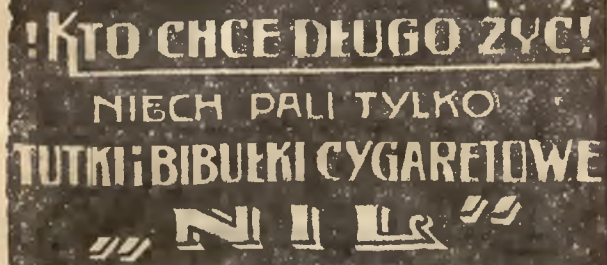 !KTO CHCE DŁUGO ŻYĆ!
NIECH PALI TYLKO
TUTKI i BIBUŁKI CYGARETOWE
„NIL”